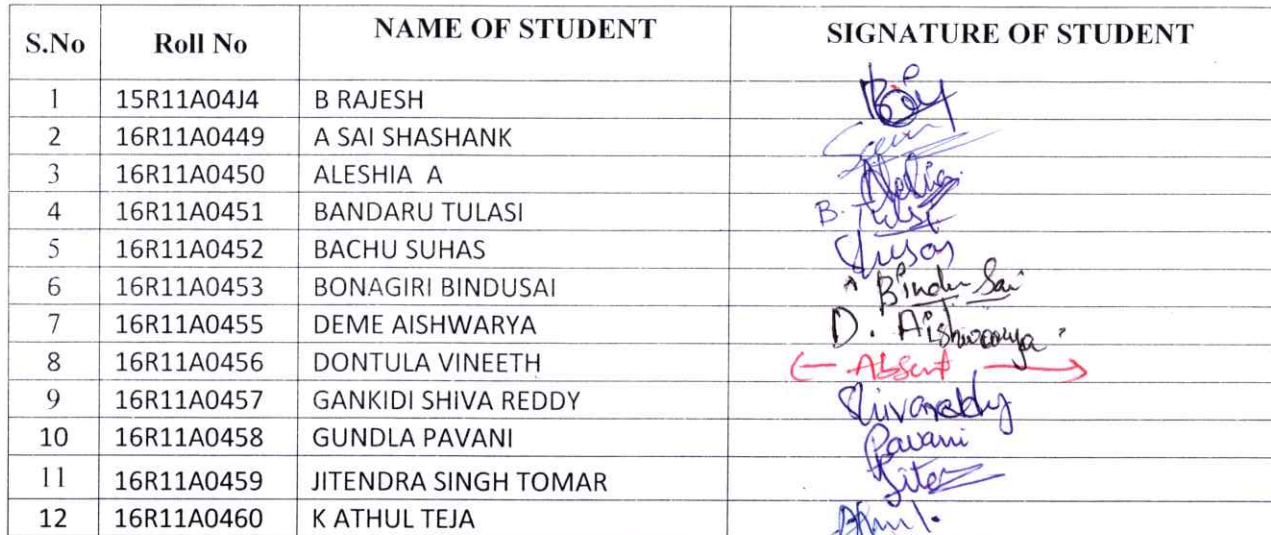 S.No Roll No NAME OF STUDENT SIGNATURE OF STUDENT
1 15R11A04J4 B RAJESH
2 16R11A0449 A SAI SHASHANK
3 16R11A0450 ALESHIA A
4 16R11A0451 BANDARU TULASI B. Tulasi
5 16R11A0452 BACHU SUHAS
6 16R11A0453 BONAGIRI BINDUSAI Bindu Sai
7 16R11A0455 DEME AISHWARYA D. Aishwarya
8 16R11A0456 DONTULA VINEETH Absent
9 16R11A0457 GANKIDI SHIVA REDDY Shivareddy
10 16R11A0458 GUNDLA PAVANI Pavani
11 16R11A0459 JITENDRA SINGH TOMAR
12 16R11A0460 K ATHUL TEJA